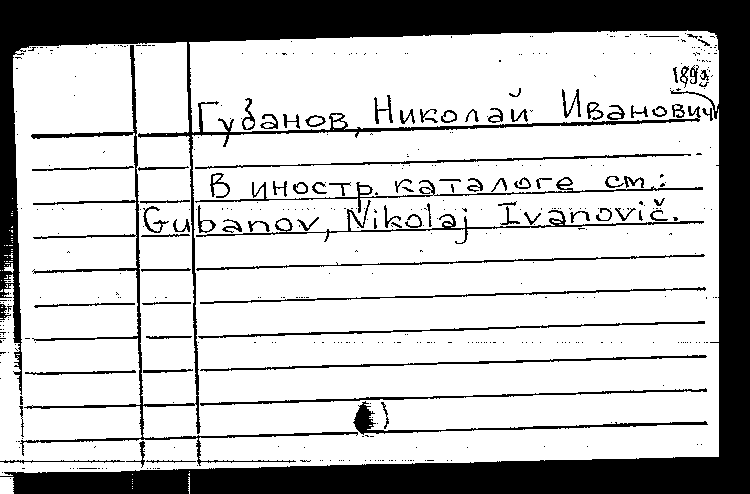 1899
Губанов, Николай Иванович
В иностр. каталоге см.:
Gubanov, Nikolaj Ivanovič.